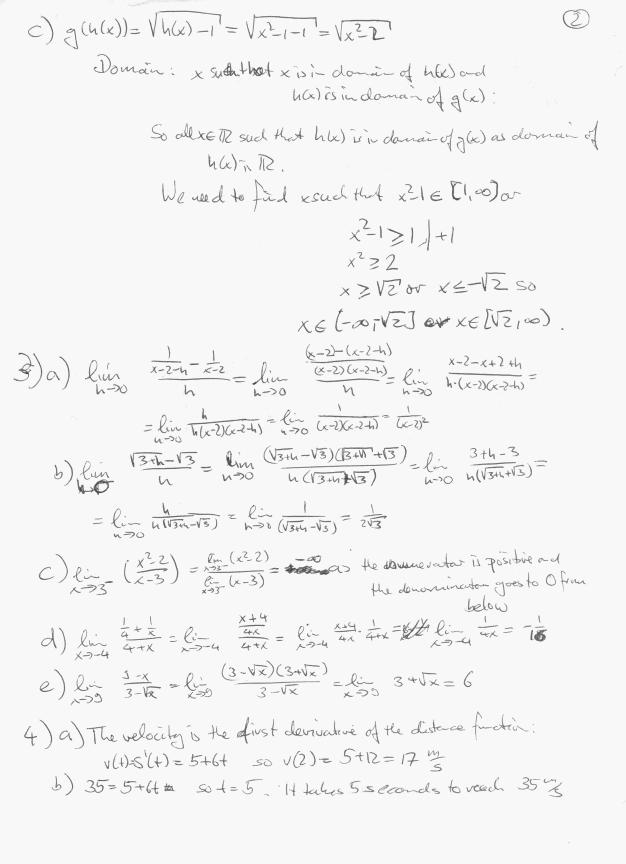 2
c) g(h(x)) = √(h(x)-1) = √(x²-1-1) = √(x²-2)
Domain: x such that x is in domain of h(x) and
h(x) is in domain of g(x):
So all x∈ℝ such that h(x) is in domain of g(x) as domain of
h(x) is ℝ.
We need to find x such that x²-1 ∈ [1,∞) or
x²-1 ≥ 1 | +1
x² ≥ 2
x ≥ √2 or x ≤ -√2 so
x ∈ (-∞,-√2] or x ∈ [√2,∞).
3) a) lim h→0 (1/(x-2-h) - 1/(x-2))/h = lim h→0 (((x-2)-(x-2-h))/((x-2)(x-2-h)))/h = lim h→0 (x-2-x+2+h)/(h·(x-2)(x-2-h)) =
= lim h→0 h/(h(x-2)(x-2-h)) = lim h→0 1/((x-2)(x-2-h)) = 1/(x-2)²
b) lim h→0 (√(3+h)-√3)/h = lim h→0 ((√(3+h)-√3)(√(3+h)+√3))/(h(√(3+h)+√3)) = lim h→0 (3+h-3)/(h(√(3+h)+√3)) =
= lim h→0 h/(h(√(3+h)-√3)) = lim h→0 1/(√(3+h)-√3) = 1/(2√3)
c) lim x→3⁻ ((x²-2)/(x-3)) = (lim x→3⁻ (x²-2))/(lim x→3⁻ (x-3)) = -∞ as the numerator is positive and
the denominator goes to 0 from
below
d) lim x→-4 (1/4 + 1/x)/(4+x) = lim x→-4 ((x+4)/(4x))/(4+x) = lim x→-4 (x+4)/(4x) · 1/(4+x) = lim x→-4 1/(4x) = -1/16
e) lim x→9 (9-x)/(3-√x) = lim x→9 ((3-√x)(3+√x))/(3-√x) = lim x→9 3+√x = 6
4) a) The velocity is the first derivative of the distance function:
v(t)=s'(t) = 5+6t so v(2) = 5+12 = 17 m/s
b) 35=5+6t so t=5. It takes 5 seconds to reach 35 m/s